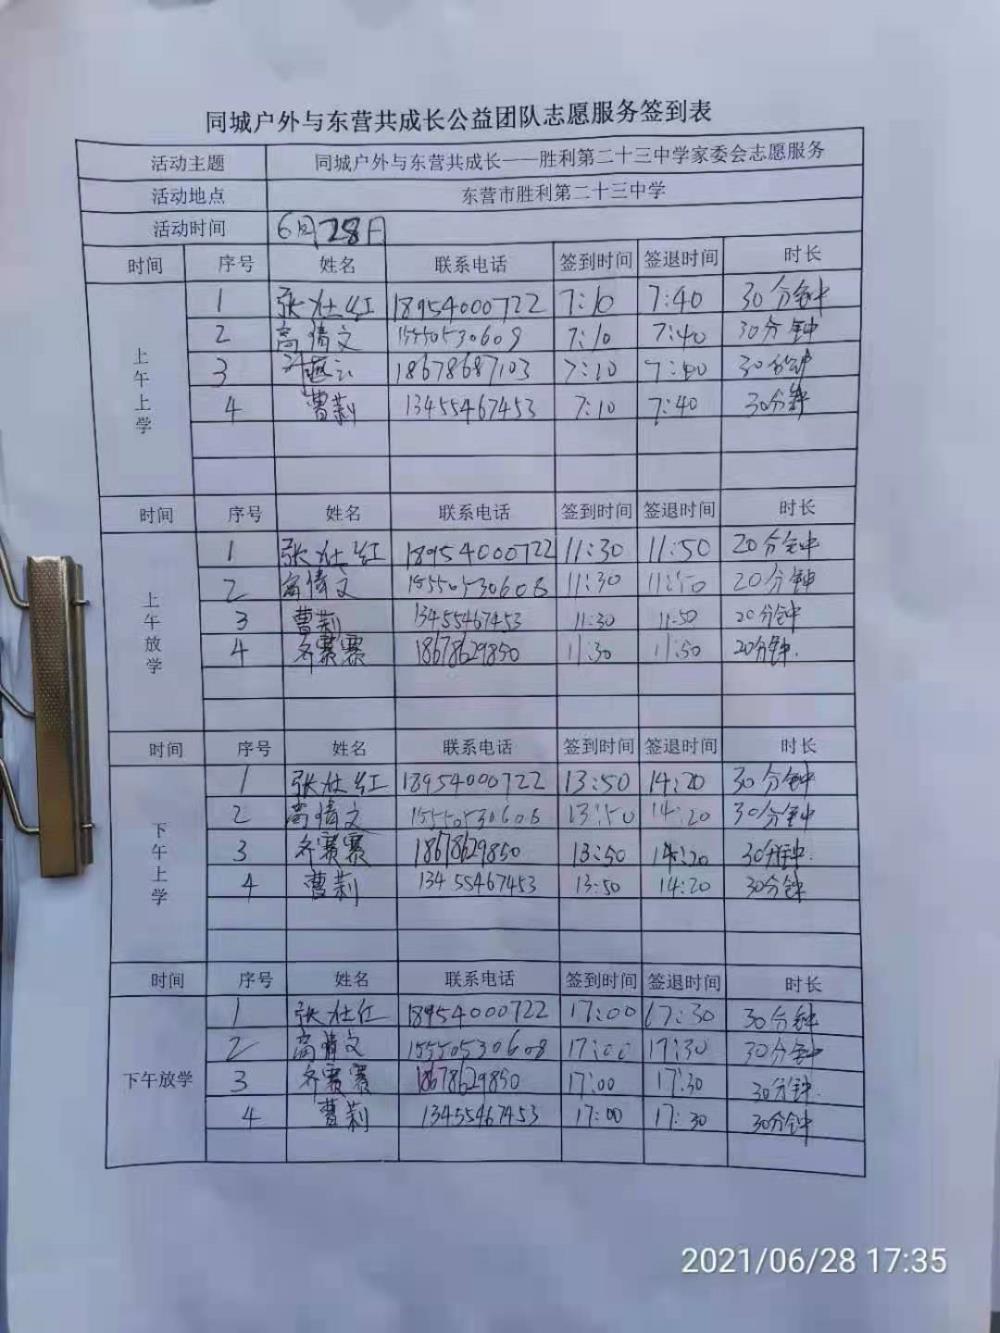 同城户外与东营共成长公益团队志愿服务签到表
活动主题 同城户外与东营共成长——胜利第二十三中学家委会志愿服务
活动地点 东营市胜利第二十三中学
活动时间 6月28日
时间 序号 姓名 联系电话 签到时间 签退时间 时长
上午上学
1 张壮红 18954000722 7:10 7:40 30分钟
2 高倩文 7:10 7:40 30分钟
3 燕云 18678687103 7:10 7:40 30分钟
4 曹莉 13455467453 7:10 7:40 30分钟
时间 序号 姓名 联系电话 签到时间 签退时间 时长
上午放学
1 张壮红 18954000722 11:30 11:50 20分钟
2 高倩文 15550530608 11:30 11:50 20分钟
3 曹莉 13455467453 11:30 11:50 20分钟
4 齐赛赛 18678629850 11:30 11:50 20分钟.
时间 序号 姓名 联系电话 签到时间 签退时间 时长
下午上学
1 张壮红 18954000722 13:50 14:20 30分钟
2 高倩文 15550530608 13:50 14:20 30分钟
3 齐赛赛 18678629850 13:50 14:20 30分钟.
4 曹莉 13455467453 13:50 14:20 30分钟
时间 序号 姓名 联系电话 签到时间 签退时间 时长
下午放学
1 张壮红 18954000722 17:00 17:30 30分钟
2 高倩文 15550530608 17:00 17:30 30分钟
3 齐赛赛 18678629850 17:00 17:30 30分钟.
4 曹莉 13455467453 17:00 17:30 30分钟
2021/06/28 17:35